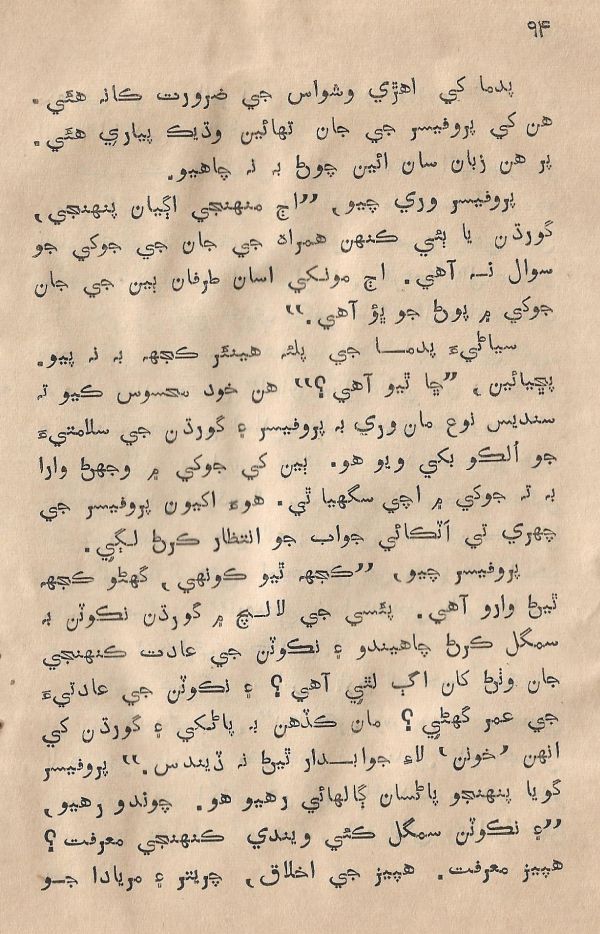 ۹۴
پدما کي اهڙي وشواس جي ضرورت ڪانہ هئي.
هن کي پروفيسر جي جان تهائين وڌيڪ پياري هئي.
پر هن زبان سان ائين چوڻ بہ نہ چاهيو.
پروفيسر وري چيو, ”اڄ منهنجي اڳيان پنهنجي,
گورڌن يا ٻئي ڪنهن همراه جي جان جي جوکي جو
سوال نہ آهي. اڄ مونکي اسان طرفان ٻين جي جان
جوکي ۾ پوڻ جو ڀؤ آهي.“
سياڻيءَ پدما جي پلئہ هينئر ڪجهہ بہ نہ پيو.
پڇيائين, ”ڇا ٿيو آهي؟“ هن خود محسوس ڪيو تہ
سنديس نوع مان وري بہ پروفيسر ۽ گورڌن جي سلامتيءَ
جو اُلڪو بکي ويو هو. ٻين کي جوکي ۾ وجهڻ وارا
بہ تہ جوکي ۾ اچي سگهيا ٿي. هوءَ اکيون پروفيسر جي
چهري تي اَٽڪائي جواب جو انتظار ڪرڻ لڳي.
پروفيسر چيو, ”ڪجهہ ٿيو ڪونهي, گهڻو ڪجهہ
ٿيڻ وارو آهي. پئسي جي لالچ ۾ گورڌن نڪوٽن بہ
سمگل ڪرڻ چاهيندو ۽ نڪوٽن جي عادت ڪنهنجي
جان وٺڻ کان اڳ لٿي آهي؟ ۽ نڪوٽن جي عادتيءَ
جي عمر گهڻي؟ مان ڪڏهن بہ پاڻکي ۽ گورڌن کي
انهن ’خونن‘ لاءِ جوابدار ٿيڻ نہ ڏيندس.“ پروفيسر
گويا پنهنجو پاڻسان ڳالهائي رهيو هو. چوندو رهيو,
”۽ نڪوٽن سمگل ڪئي ويندي ڪنهنجي معرفت؟
هپيز معرفت. هپيز جي اخلاق, چرتر ۽ مريادا جو